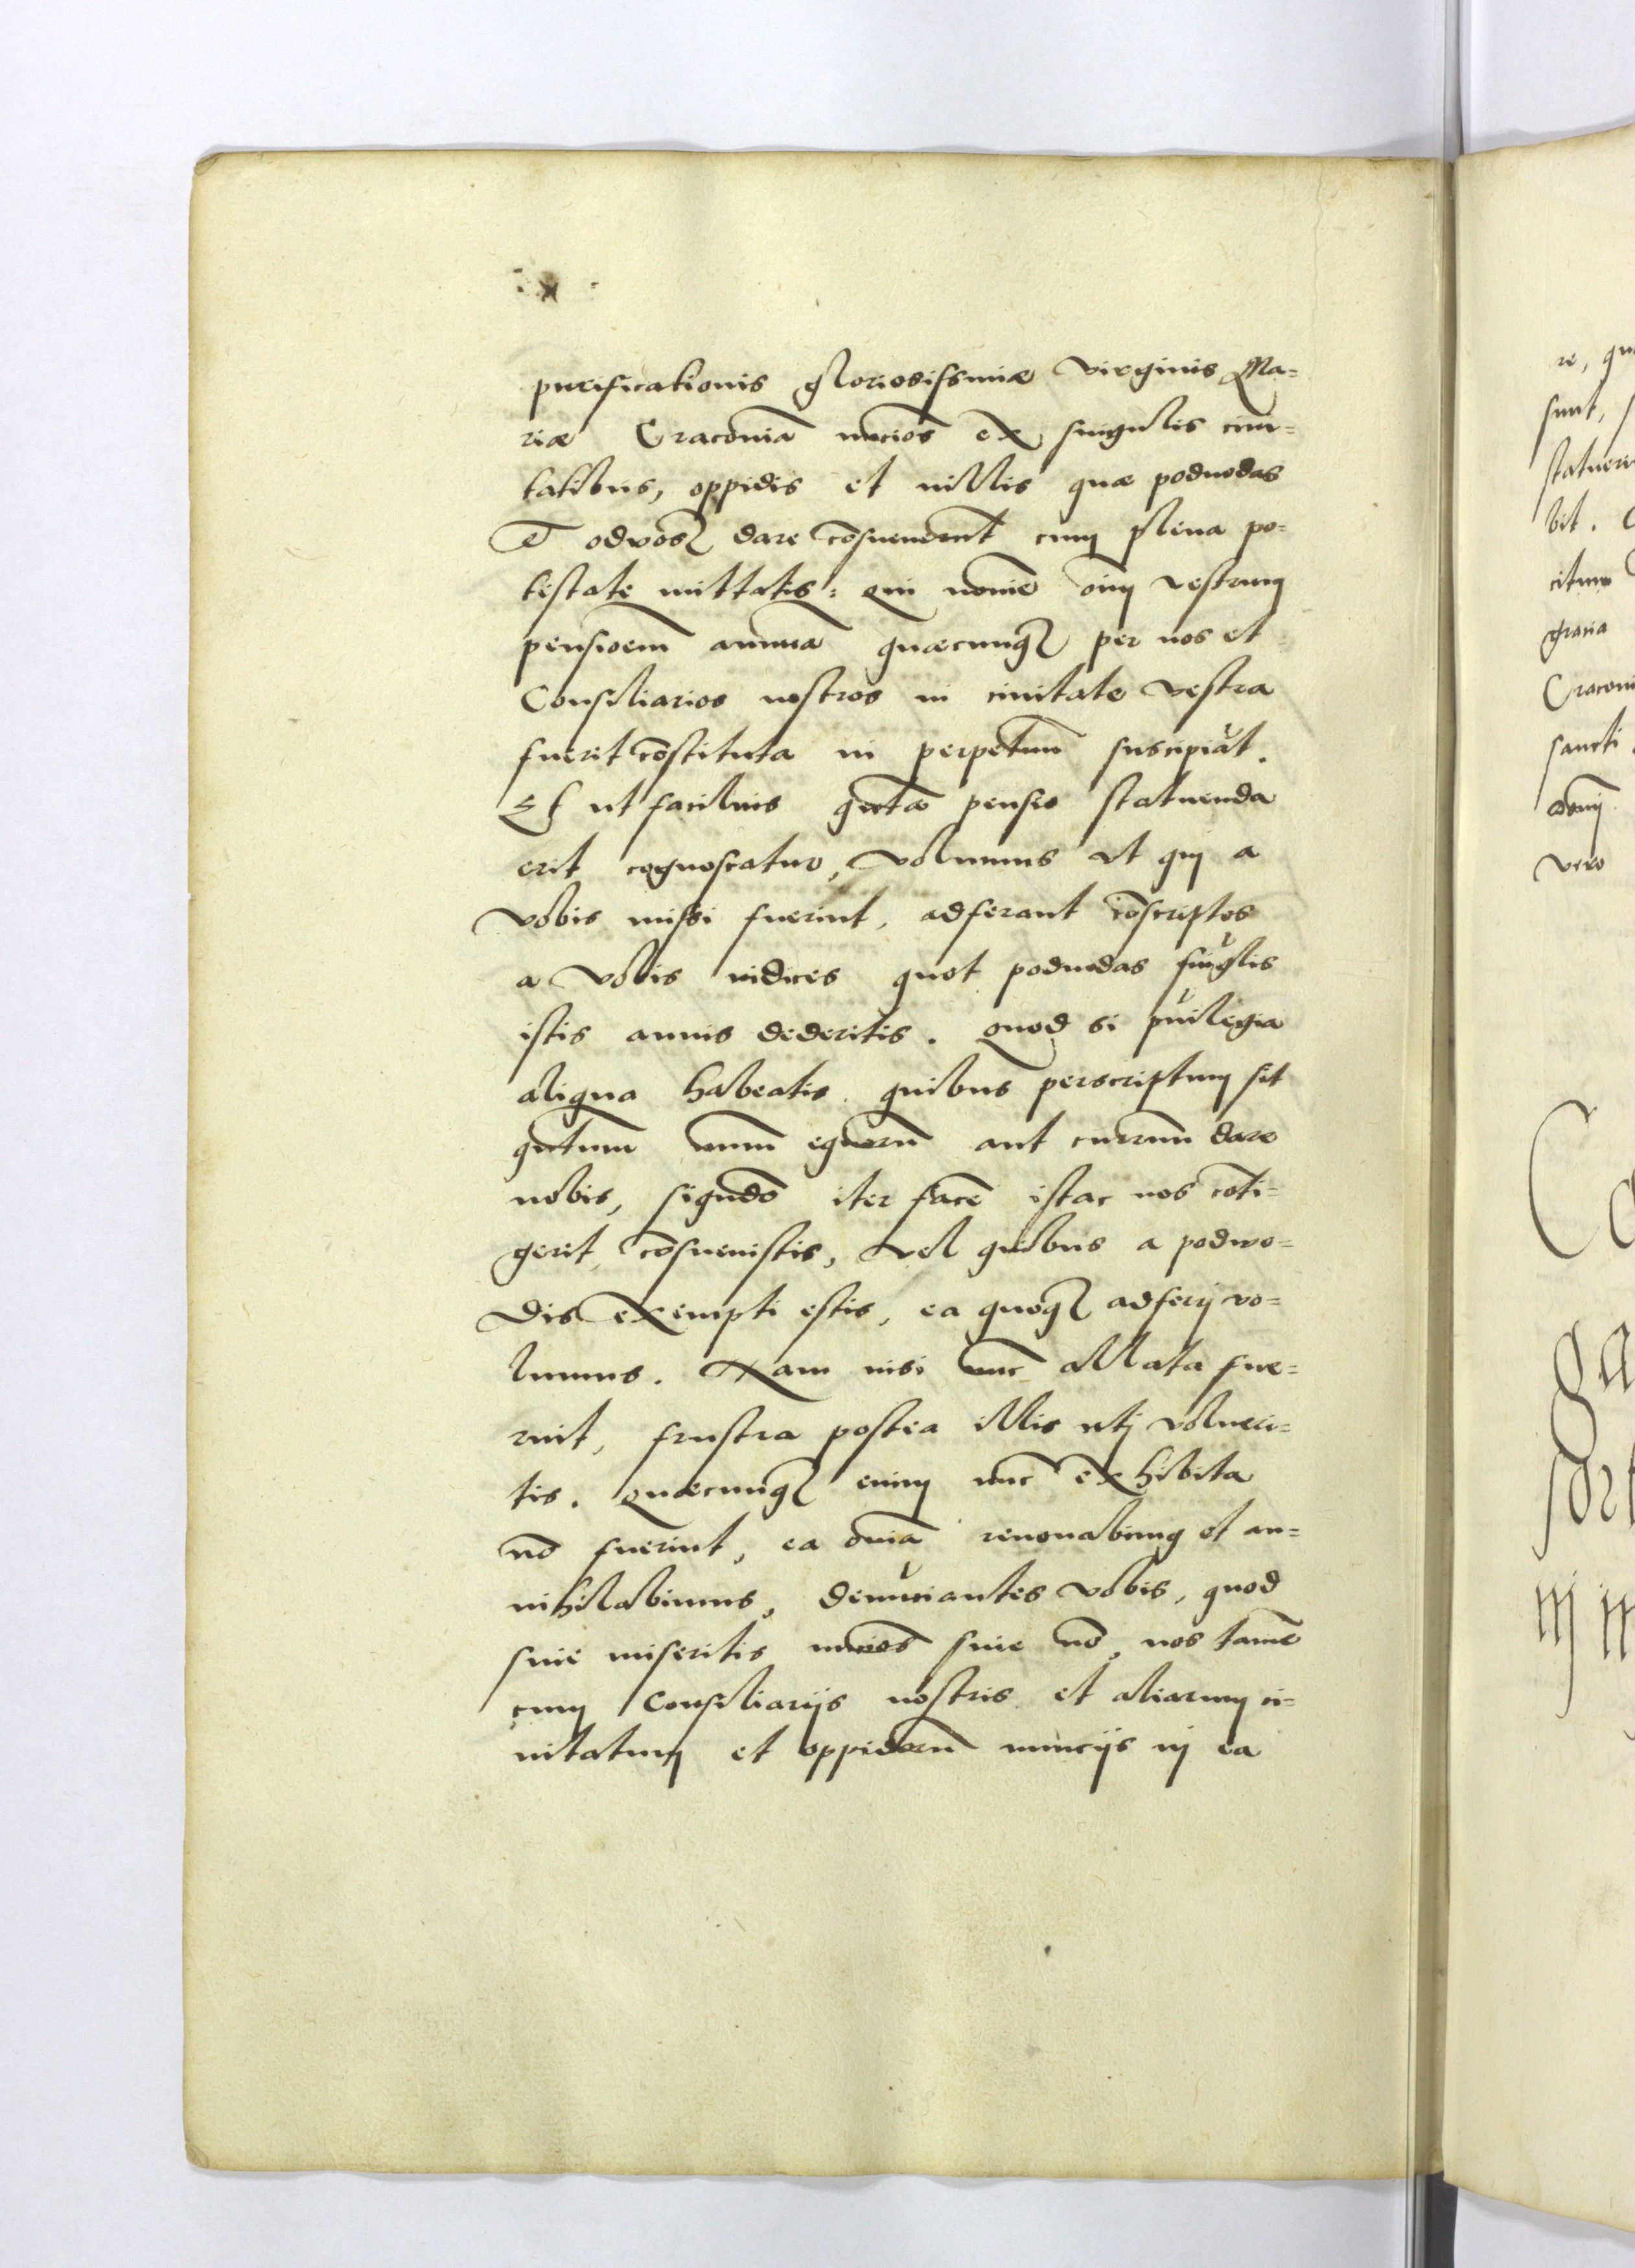 purificationis gloriosissimæ virginis Ma=
riæ Cracouiā nūcios ex singulis ciui=
tatibus, oppidis et uillis quæ poduodas
odwos dare cōsueuerūt cum plena po=
testate mittatis: qui nomīe oīm vestrum
pensioem annuā quæcunq₃ per nos et
Consiliarios nostros in ciuitate vestra
fuerit cōstituta in perpetuū suscipiāt.
Et ut facilius quāta pensio statuenda
erit cognoscatur, volumus ut qui a
vobis missi fuerint, adferant cōscriptos
a vobis indices quot poduodas singlis
istis annis dederitis. Quod si puilegia
aliqua habeatis quibus perscriptum sit
quātum unum equorū aut currum dare
nobis, siqūdo iter facē istac nos cōti=
gerit, cōsueuistis, vel quibus a podwo=
dis exempti estis, ea quoq₃ adferij vo=
lumus. Nam nisi nūc allata fue=
rint, frustra postea illis uti volueri=
tis. Quæcunq₃ enim nūc exhibita
nō fuerint, ea oīnia reuocabimus et an=
nihilabimus, denūciantes vobis, quod
siue miseritis nūcios siue nō, nos tamē
cum Consiliarijs nostris et aliarum ci=
uitatum et oppidorū nuncijs in ea
re, qu
sunt,
statuer
bit.
citum
gratia
Cracoui
sancti
vero